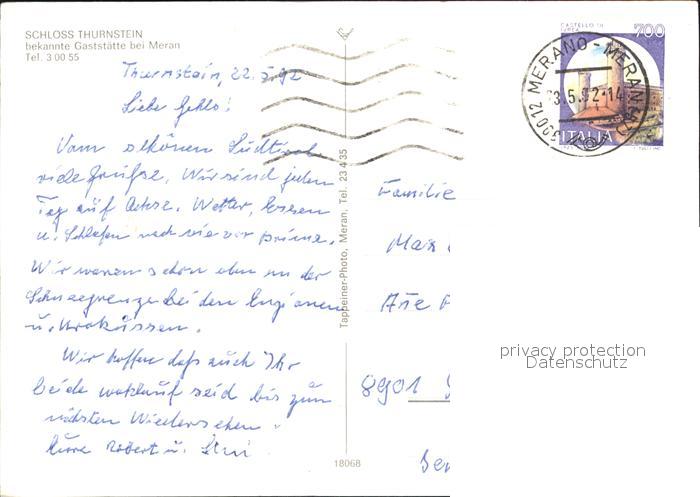 SCHLOSS THURNSTEIN
bekannte Gaststätte bei Meran
Tel. 3 00 55
Thurnstein, 22.5.92
Liebe
Vom schönen Südtirol
viele Grüße. Wir sind jeden
Tag auf Achse. Wetter, Essen
u. Schlafen nach wie vor prima.
Wir waren schon oben an der
Schneegrenze bei den Enzianen
u. Krokussen.
Wir hoffen daß auch Ihr
beide wohlauf seid bis zum
nächsten Wiedersehen.
Eure Robert u.
Tappeiner-Photo, Meran, Tel. 23 4 35
18068
CASTELLO DI
700
ITALIA
39012 MERANO-MERAN
3.5.92-14
Familie
Max
8901
privacy protection
Datenschutz